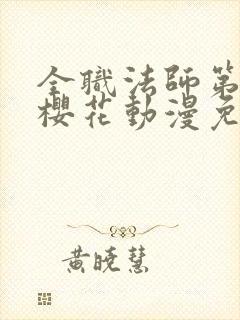 全職法師第
櫻花動漫免
黃曉慧